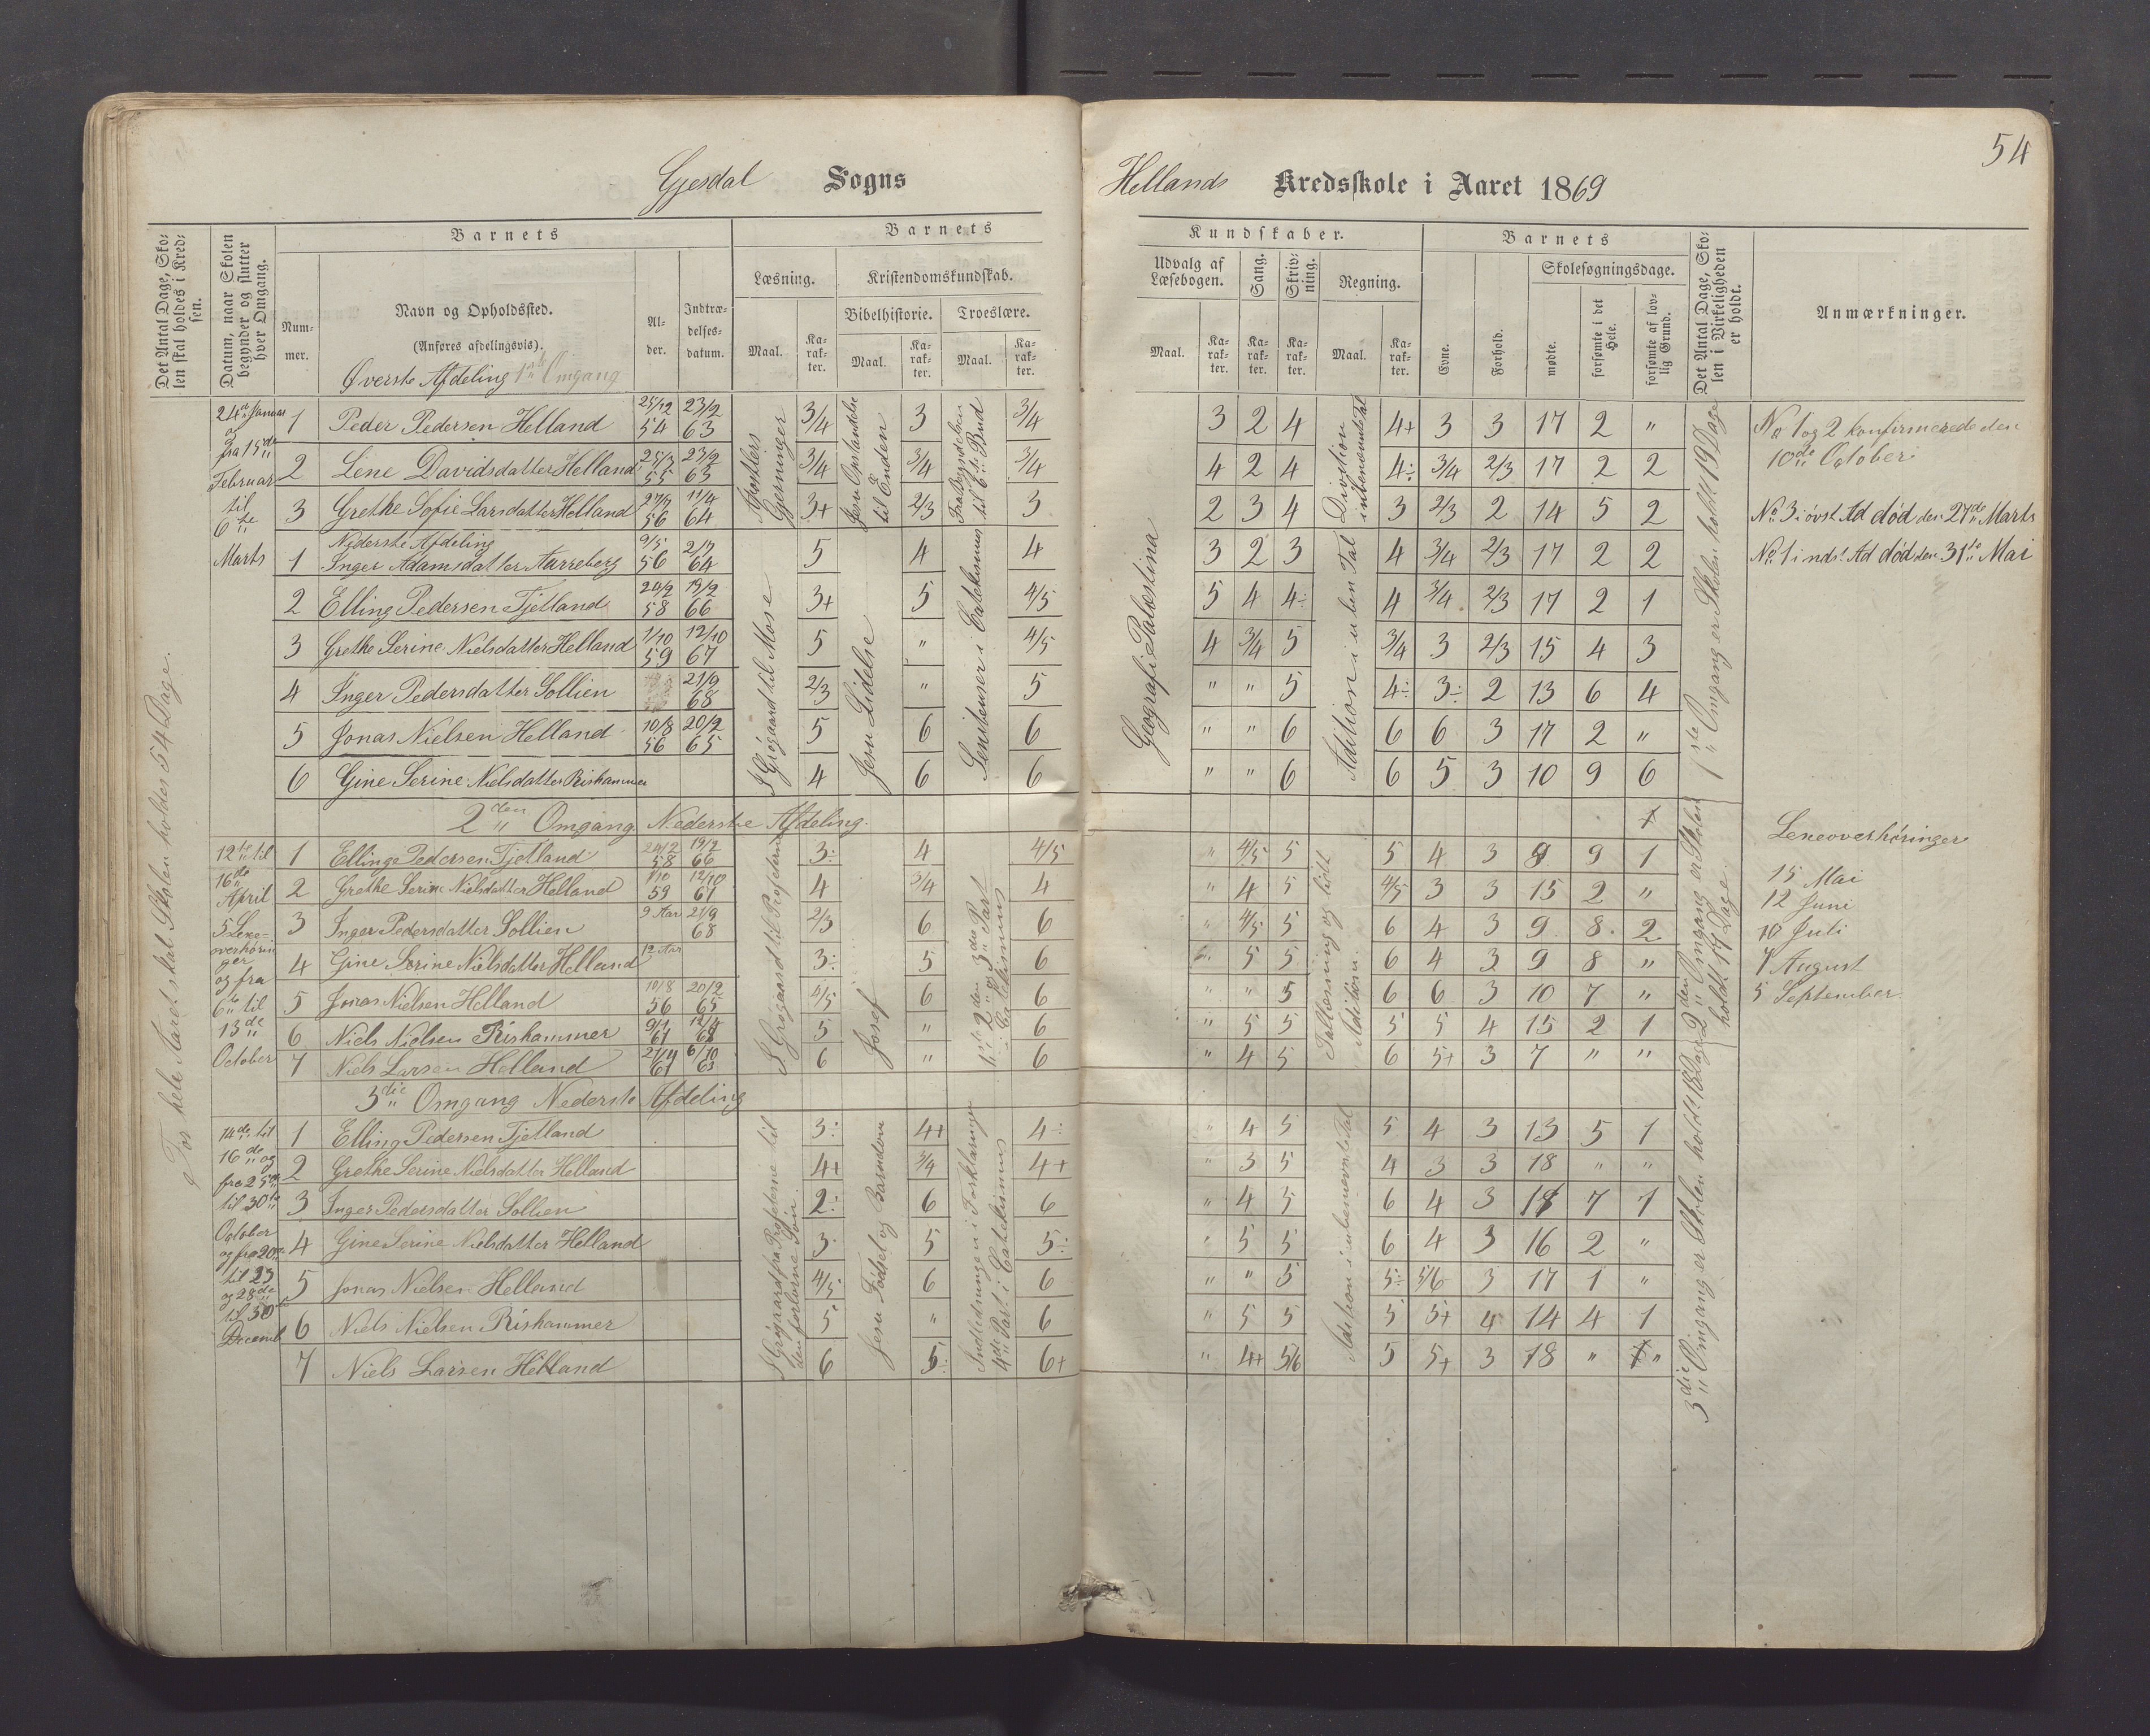 54
Gjesdal Sogns
Hellands Kredsskole i Aaret 1869
Det Antal Dage, Sko-
len skal holdes i Kred-
sen.
Datum, naar Skolen
begynder og slutter
hver Omgang.
Barnets
Num-
mer.
Navn og Opholdssted.
(Anføres afdelingsvis).
Øverste Afdeling 1ste Omgang
Al-
der.
Indtræ-
delses-
datum.
Barnets
Læsning.
Maal.
Ka-
rak-
ter.
Kristendomskundskab.
Bibelhistorie.
Maal.
Ka-
rak-
ter.
Troeslære.
Maal.
Ka-
rak-
ter.
Kundskaber.
Udvalg af
Læsebogen.
Maal.
Ka-
rak-
ter.
Sang.
Ka-
rak-
ter.
Skriv-
ning.
Ka-
rak-
ter.
Regning.
Maal.
Ka-
rak-
ter.
Barnets
Evne.
Forhold.
Skolesøgningsdage.
mødte.
forsømte i det
Hele.
forsømte af lov-
lig Grund.
Det Antal Dage, Sko-
len i Virkeligheden
er holdt.
Anmærkninger.
For hele Aaret skal Skolen holdes 54 Dage.
24de Januar
og
fra 15de
Februar
til
6te
Marts
1 Peder Pedersen Helland 25/12 54 23/2 63 3/4 3 3/4 3 2 4 4+ 3 3 17 2 "
2 Lene Davidsdatter Helland 25/3 55 23/2 63 3/4 3/4 3/4 4 2 4 4÷ 3/4 2/3 17 2 2
3 Grethe Sofie Larsdatter Helland 27/7 56 11/4 64 3+ 2/3 3 2 3 4 3 2/3 2 14 5 2
Nederste Afdeling
1 Inger Adamsdatter Aarreberg 9/5 56 2/7 64 5 4 4 3 2 3 4 3/4 2/3 17 2 2
2 Elling Pedersen Tjetland 24/2 58 19/2 66 3+ 5 4/5 5 4 4÷ 4 3/4 2/3 17 2 1
3 Grethe Serine Nielsdatter Helland 1/10 59 12/10 67 5 " 4/5 4 3/4 5 3/4 3 2/3 15 4 3
4 Inger Pedersdatter Sollien 21/9 68 2/3 " 5 " " 5 4÷ 3÷ 2 13 6 4
5 Jonas Nielsen Helland 10/8 56 20/2 65 5 6 6 " " 6 6 6 3 17 2 "
6 Gine Serine Nielsdatter Rishammer 4 6 6 " " 6 6 5 3 10 9 6
Apostlers
Gjerninger
Jesu Opstandelse
til Enden
Fra Begyndelsen
til 6te Bud
Divistion
i ubenævnte Tal
I Grøgaard til Mose
Jesu Lidelse
Sensitenser i Catekismus
Geografi Palæstina
Adition i uben Tal
1ste Omgang er Skolen holdt 19 Dage
No 1 og 2 konfirmerede den
10de October
No 3 i øvst Ad død den 27de Marts
No 1 i nds. Ad død den 31te Mai
2den Omgang Nederste Afdeling.
12te til
16de
April
5 Lexe-
overhørin
ger
og fra
6te til
13de
October
1 Elling Pedersen Tjetland 24/2 58 19/2 66 3÷ 4 4/5 " 4/5 5 5 4 3 9 9 1
2 Grethe Serine Nielsdatter Helland 1/10 59 12/10 67 4 3/4 4 " 4 5 4/5 3 3 15 2 "
3 Inger Pedersdatter Sollien 9 Aar 21/9 68 2/3 6 6 " 4/5 5 6 4 3 9 8 2
4 Gine Serine Nielsdatter Helland 12 Aar 3÷ 5 6 5 5 6 4 3 9 8 "
5 Jonas Nielsen Helland 10/8 56 20/2 65 4/5 6 6 " " 5 6 6 3 10 7 "
6 Niels Nielsen Rishammer 9/1 61 5 " 6 " 5 5 5 5 4 15 2 1
7 Niels Larsen Helland 61 6/10 6 " 6 " 4 5 6 5+ 3 7 " "
I Grøgaard til Profeterne
Josef
1ste 2den 3die Part
Catekismus
Tallæsning og lidt
Adition.
2den Omgang er Skolen
holdt 17 Dage
Lexeoverhøringer
15 Mai
12 Juni
10 Juli
7 August
5 September
3die Omgang Nederste Afdeling
14de til
16de og
fra 25de
til 30te
October
og fra 20de
til 23
og 28de
til 30te
Decemb
1 Elling Pedersen Tjetland 3÷ 4+ 4÷ " 4 5 5 4 3 13 5 1
2 Grethe Serine Nielsdatter Helland 4+ 3/4 4+ " 3 5 4 3 3 18 " "
3 Inger Pedersdatter Sollien 2÷ 6 6 " 4 5 6 4 3 11 7 1
4 Gine Serine Nielsdatter Helland 3 5 5÷ " 5 5 6 4 3 16 2 "
5 Jonas Nielsen Helland 4/5 6 6 " " 5 5÷ 5/6 3 17 1 "
6 Niels Nielsen Rishammer 5 " 6 " 5 5 5 5+ 4 14 4 1
7 Niels Larsen Helland 6 5÷ 6+ " 4+ 5/6 5 5+ 3 18 " "
I Grøgaard fra Profeterne til
den forlorne Søn.
Jesu Fødsel og Barndom
Indledningen i Forklaringen
4de Part i Catekismus
Adition i ubenævnte Tal
3die Omgang er Skolen holdt 18 Dage